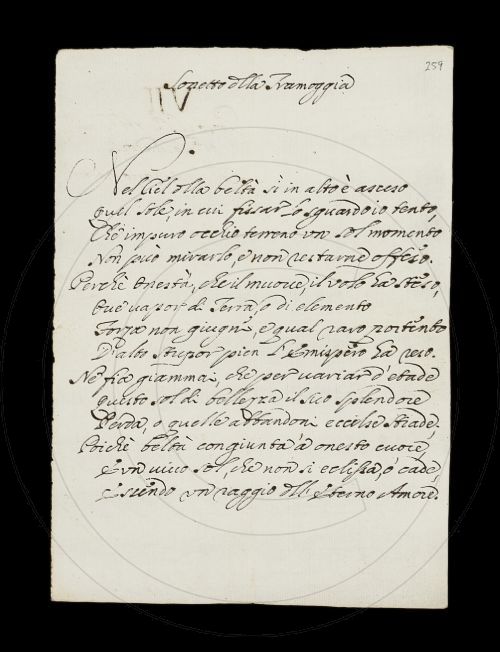 259
Sonetto della Tramoggia
VII
Nel Ciel della beltà sì in alto è asceso
quel Sole, in cui fissar lo sguardo io tento,
Che impuro occhio terreno un sol momento
Non può mirarlo, e non restarne offeso.
Perchè Onestà, che il muove, il volo ha steso,
Ove vapor di Terra, o di elemento
Forza non giugni, e qual raro portento
D'alto stupor pien l'Emispero ha reso.
Ne fia giammai, che per variar d'etade
questo sol di bellezza il suo splendore
Perda, o quelle abbandoni eccelse strade.
Poichè beltà congiunta à onesto cuore,
È un vivo sol, che non si eclissa, ò cade,
Essendo un raggio dell'Eterno Amore.